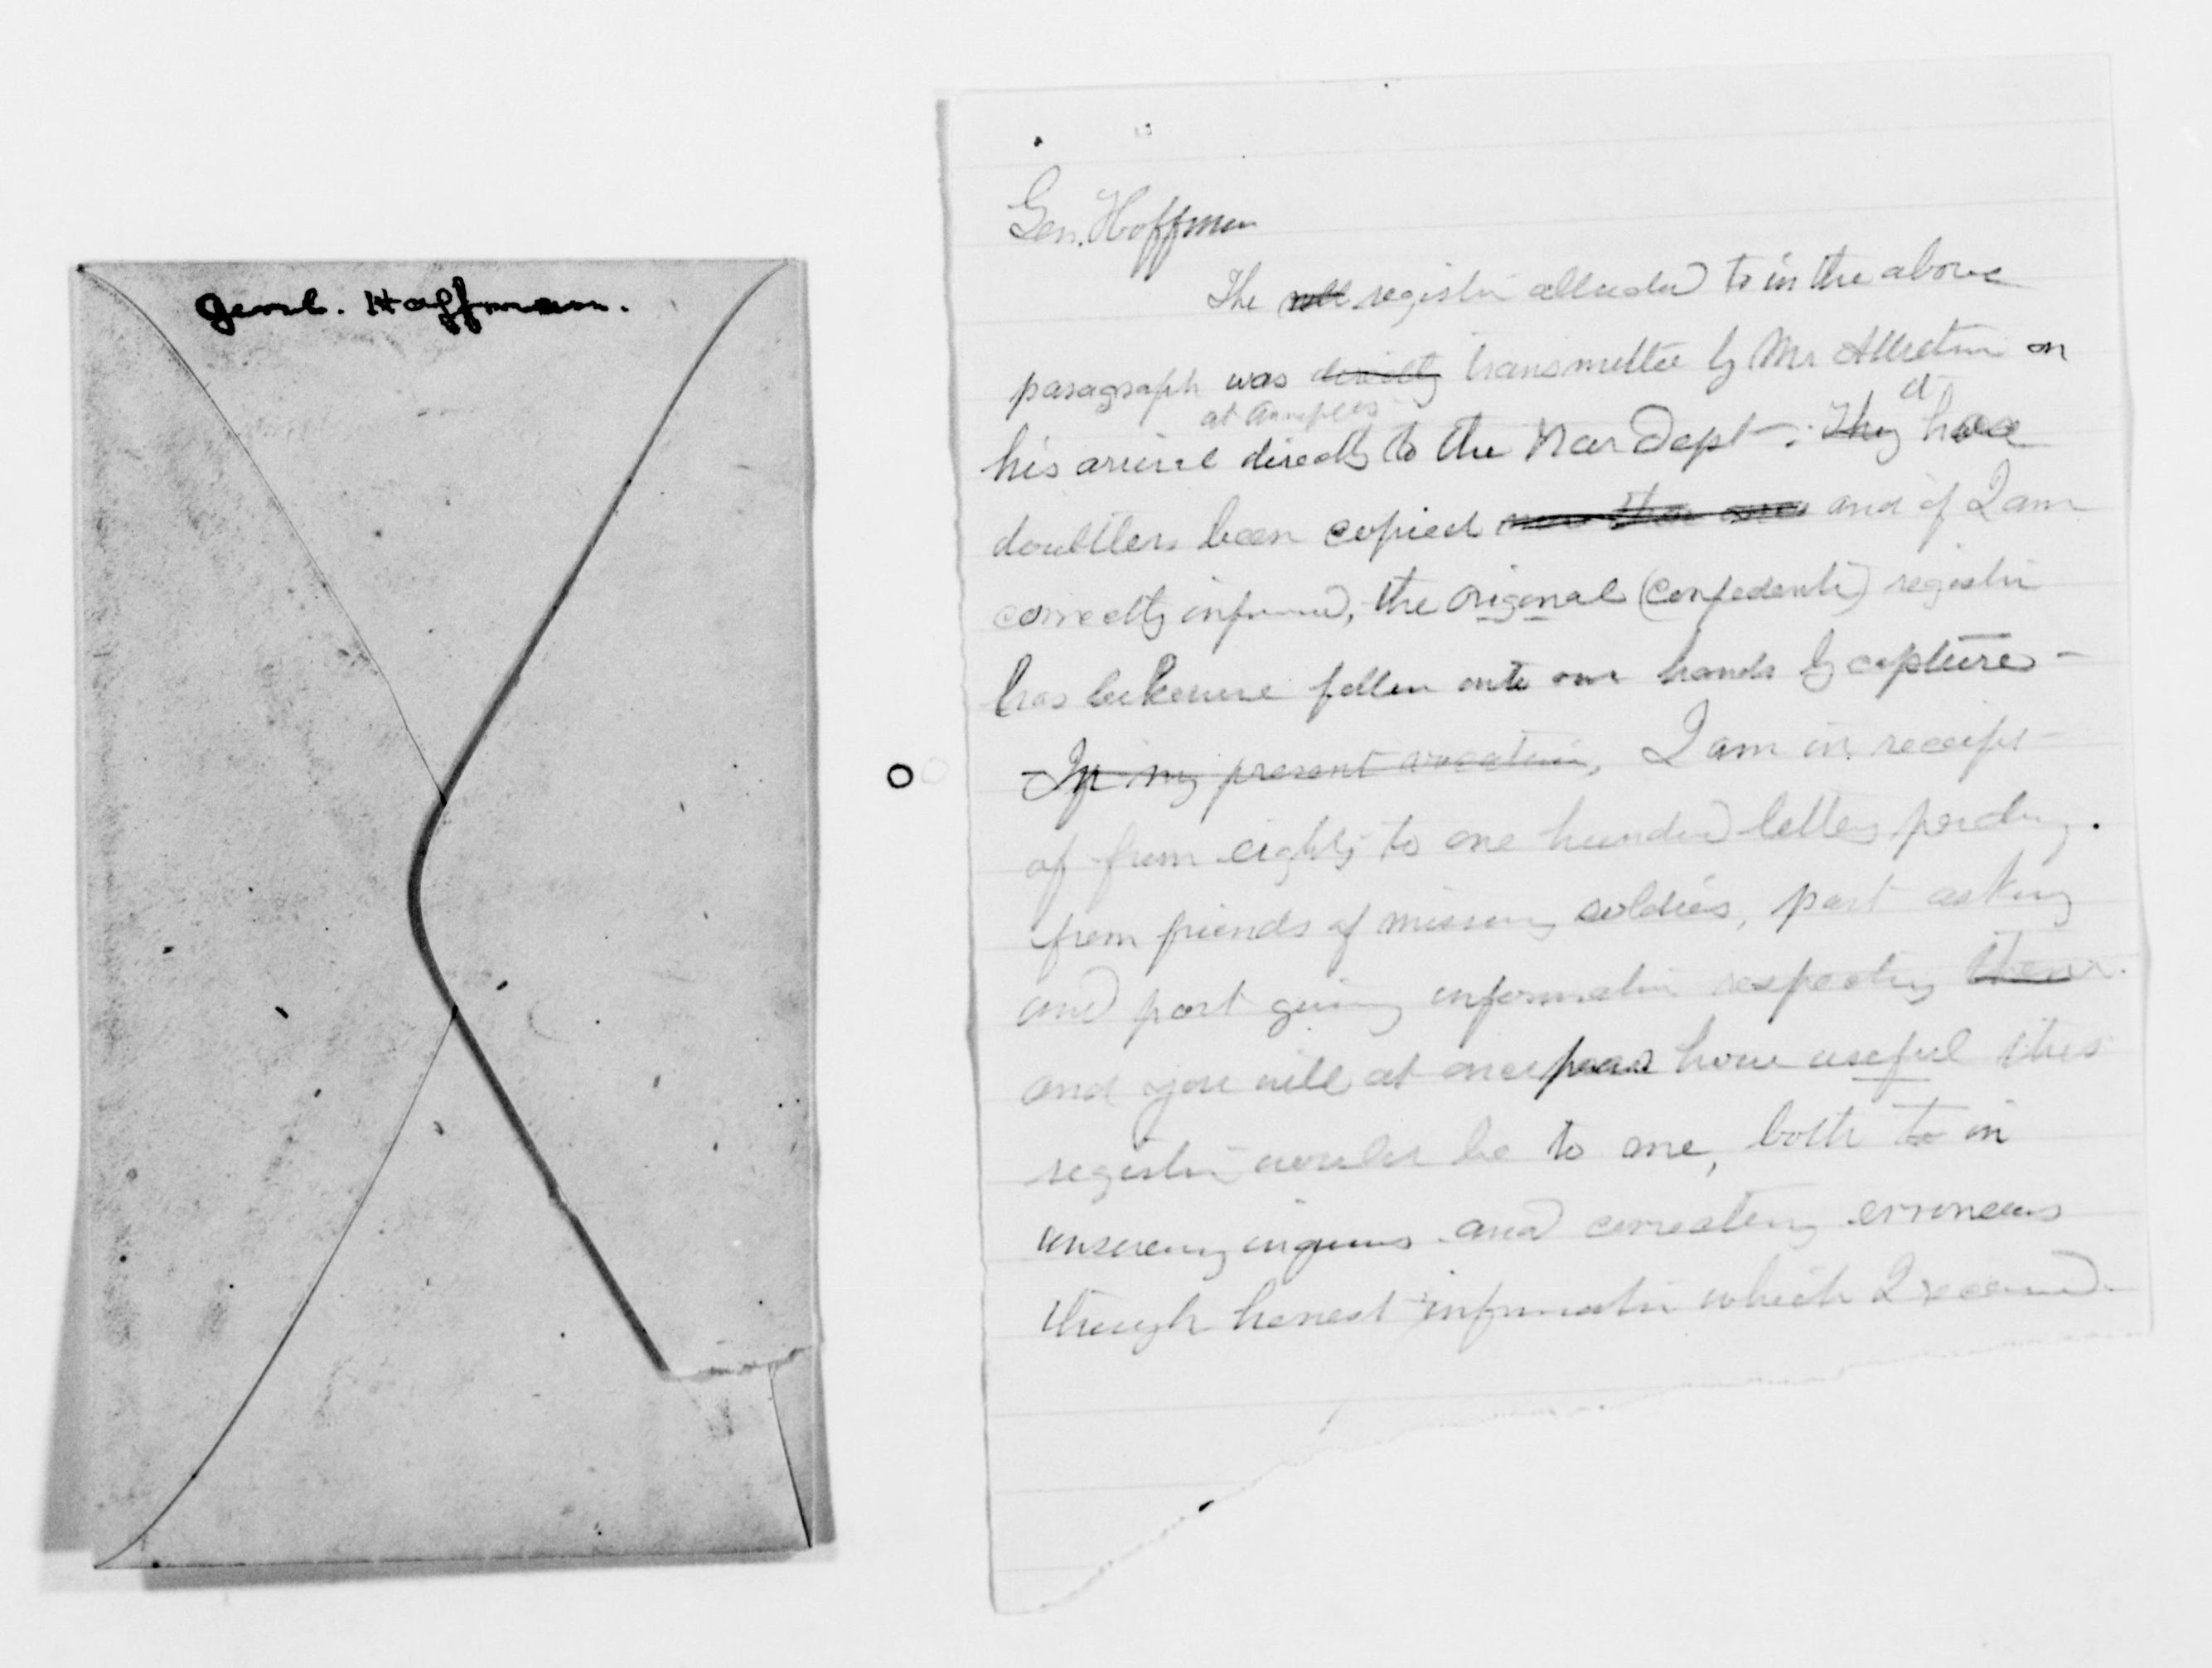 Genl. Hoffman.
Gen. Hoffman
The roll register alluded to in the above
paragraph was directly transmitted by Mr Atwater on
at Annaplis
his arival directly to the War Dept - : They it has
doubtless been copied and if I am
correctly informed, the original (Confederate) register
has likewise fallen into our hands by capture -
In my present vocation, I am in receipt
of from eighty to one hundred letters per day.
from friends of missing soldiers, part asking
and part giving information respecting them.
and you will at once how useful this
register would be to me, both to in
answering inquiries and correcting erroneous
though honest information which I received.